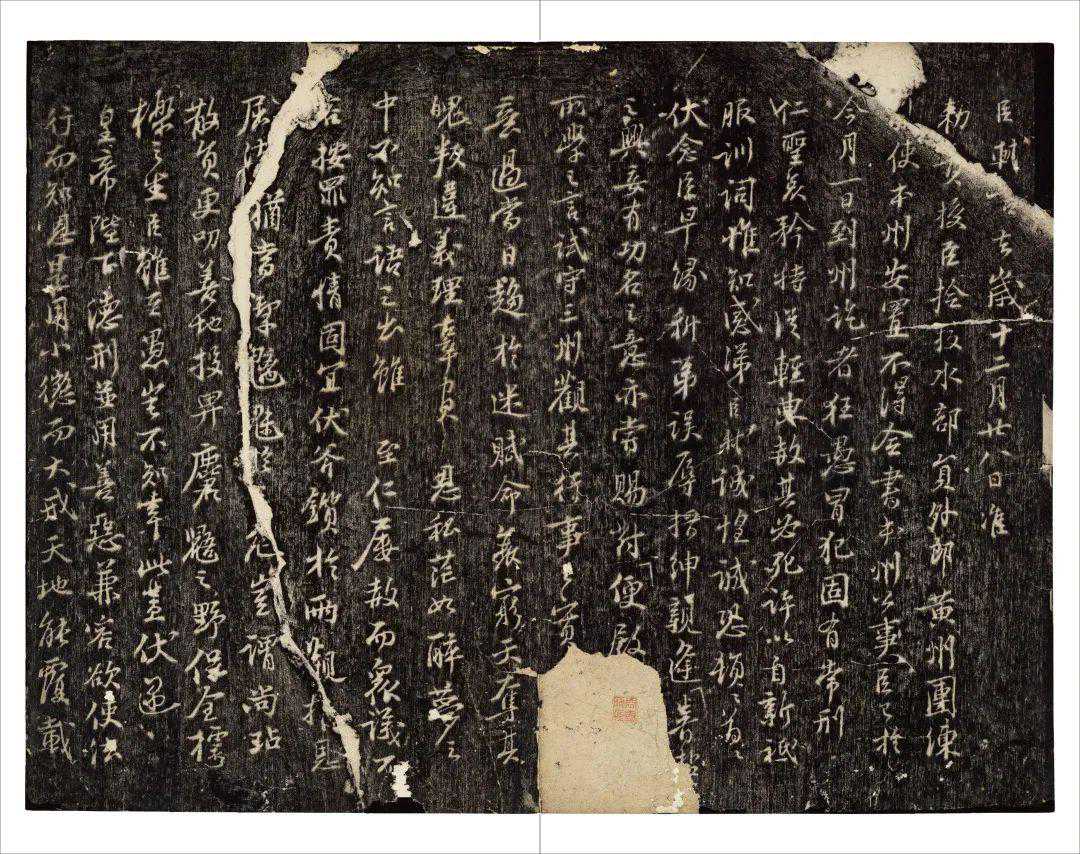 臣軾 去歲十二月廿八日准
勅責授臣撿挍水部員外郎黃州團練
使本州安置不得僉書本州公事臣已於
今月一日到州訖者狂愚冒犯固有常刑
仁聖哀矜特從輕典赦其必死許以自新祗
服訓詞惟知感涕臣軾誠惶誠恐頓〻首〻
伏念臣早緣科第誤辱搢紳親逢睿哲
之興妄有功名之意亦嘗賜對便殿
所學之言試守三州觀其行事之實
意過當日趨於迷賦命衰窮天奪其
魄叛違義理辜負恩私茫如醉夢之
中不知言語之出雖至仁屢赦而眾議不
容按罪責情固宜伏斧鑕於兩觀推恩
屈法猶當禦魑魅於 危豈謂尚玷
散員更叨善地投畀麏鼯之野保全樗
櫟之生臣雖至愚豈不知幸此蓋伏遇
皇帝陛下德刑並用善惡兼容欲使法
行而知恩是用小懲而大戒天地能覆載